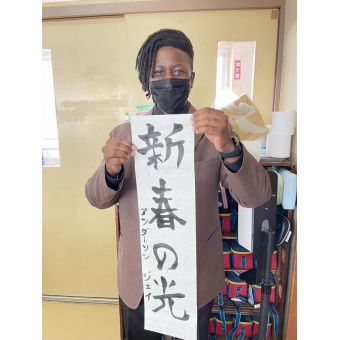 新春の光
アンダーソン ジェイ